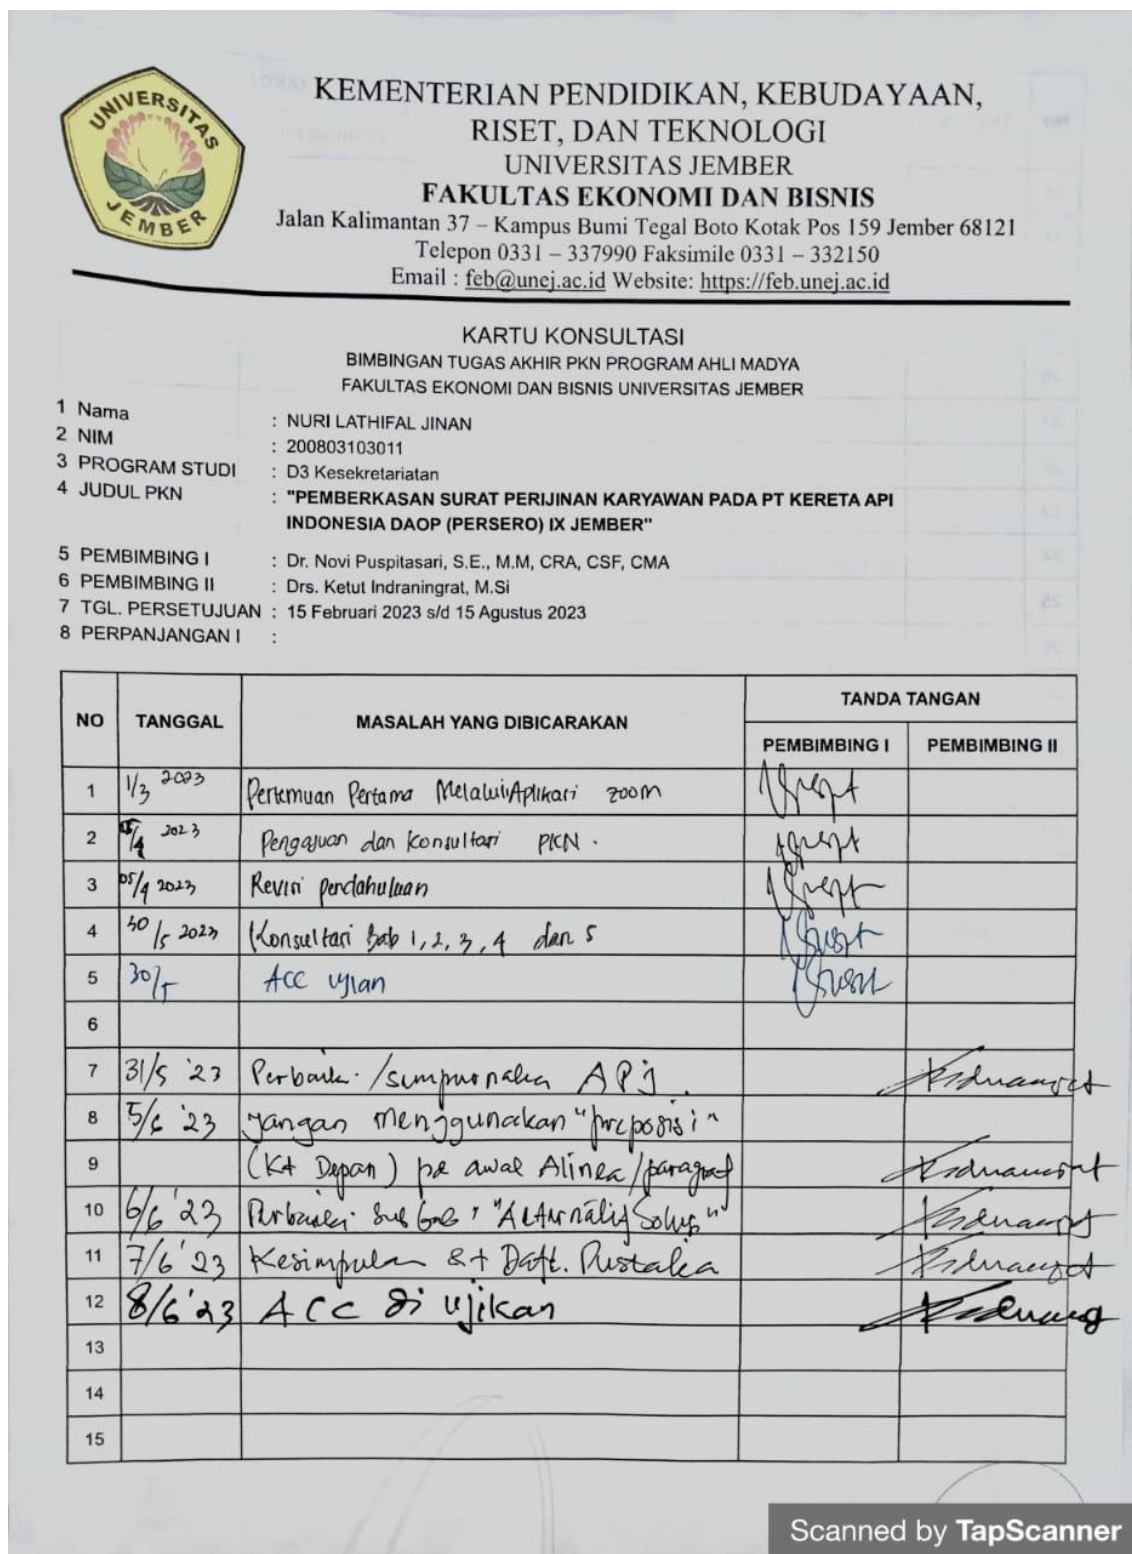 UNIVERSITAS JEMBER
KEMENTERIAN PENDIDIKAN, KEBUDAYAAN,
RISET, DAN TEKNOLOGI
UNIVERSITAS JEMBER
FAKULTAS EKONOMI DAN BISNIS
Jalan Kalimantan 37 – Kampus Bumi Tegal Boto Kotak Pos 159 Jember 68121
Telepon 0331 – 337990 Faksimile 0331 – 332150
Email : feb@unej.ac.id Website: https://feb.unej.ac.id
KARTU KONSULTASI
BIMBINGAN TUGAS AKHIR PKN PROGRAM AHLI MADYA
FAKULTAS EKONOMI DAN BISNIS UNIVERSITAS JEMBER
1 Nama : NURI LATHIFAL JINAN
2 NIM : 200803103011
3 PROGRAM STUDI : D3 Kesekretariatan
4 JUDUL PKN : "PEMBERKASAN SURAT PERIJINAN KARYAWAN PADA PT KERETA API
INDONESIA DAOP (PERSERO) IX JEMBER"
5 PEMBIMBING I : Dr. Novi Puspitasari, S.E., M.M, CRA, CSF, CMA
6 PEMBIMBING II : Drs. Ketut Indraningrat, M.Si
7 TGL. PERSETUJUAN : 15 Februari 2023 s/d 15 Agustus 2023
8 PERPANJANGAN I :
NO TANGGAL MASALAH YANG DIBICARAKAN TANDA TANGAN
PEMBIMBING I PEMBIMBING II
1 1/3 2023 Pertemuan Pertama Melalui Aplikasi zoom
2 2023 Pengajuan dan Konsultasi PKN.
3 05/4 2023 Revisi pendahuluan
4 30/5 2023 Konsultasi Bab 1, 2, 3, 4 dan 5
5 30/5 Acc ujian
6
7 31/5 '23 /sempurnaka
8 5/6 '23 Jangan menggunakan "preposisi"
9 (Kt Depan) pd awal Alinea/paragraf
10 6/6 '23
11 7/6 '23 Kesimpulan Daft. Pustaka
12 8/6 '23 ACC di ujikan
13
14
15
Scanned by TapScanner